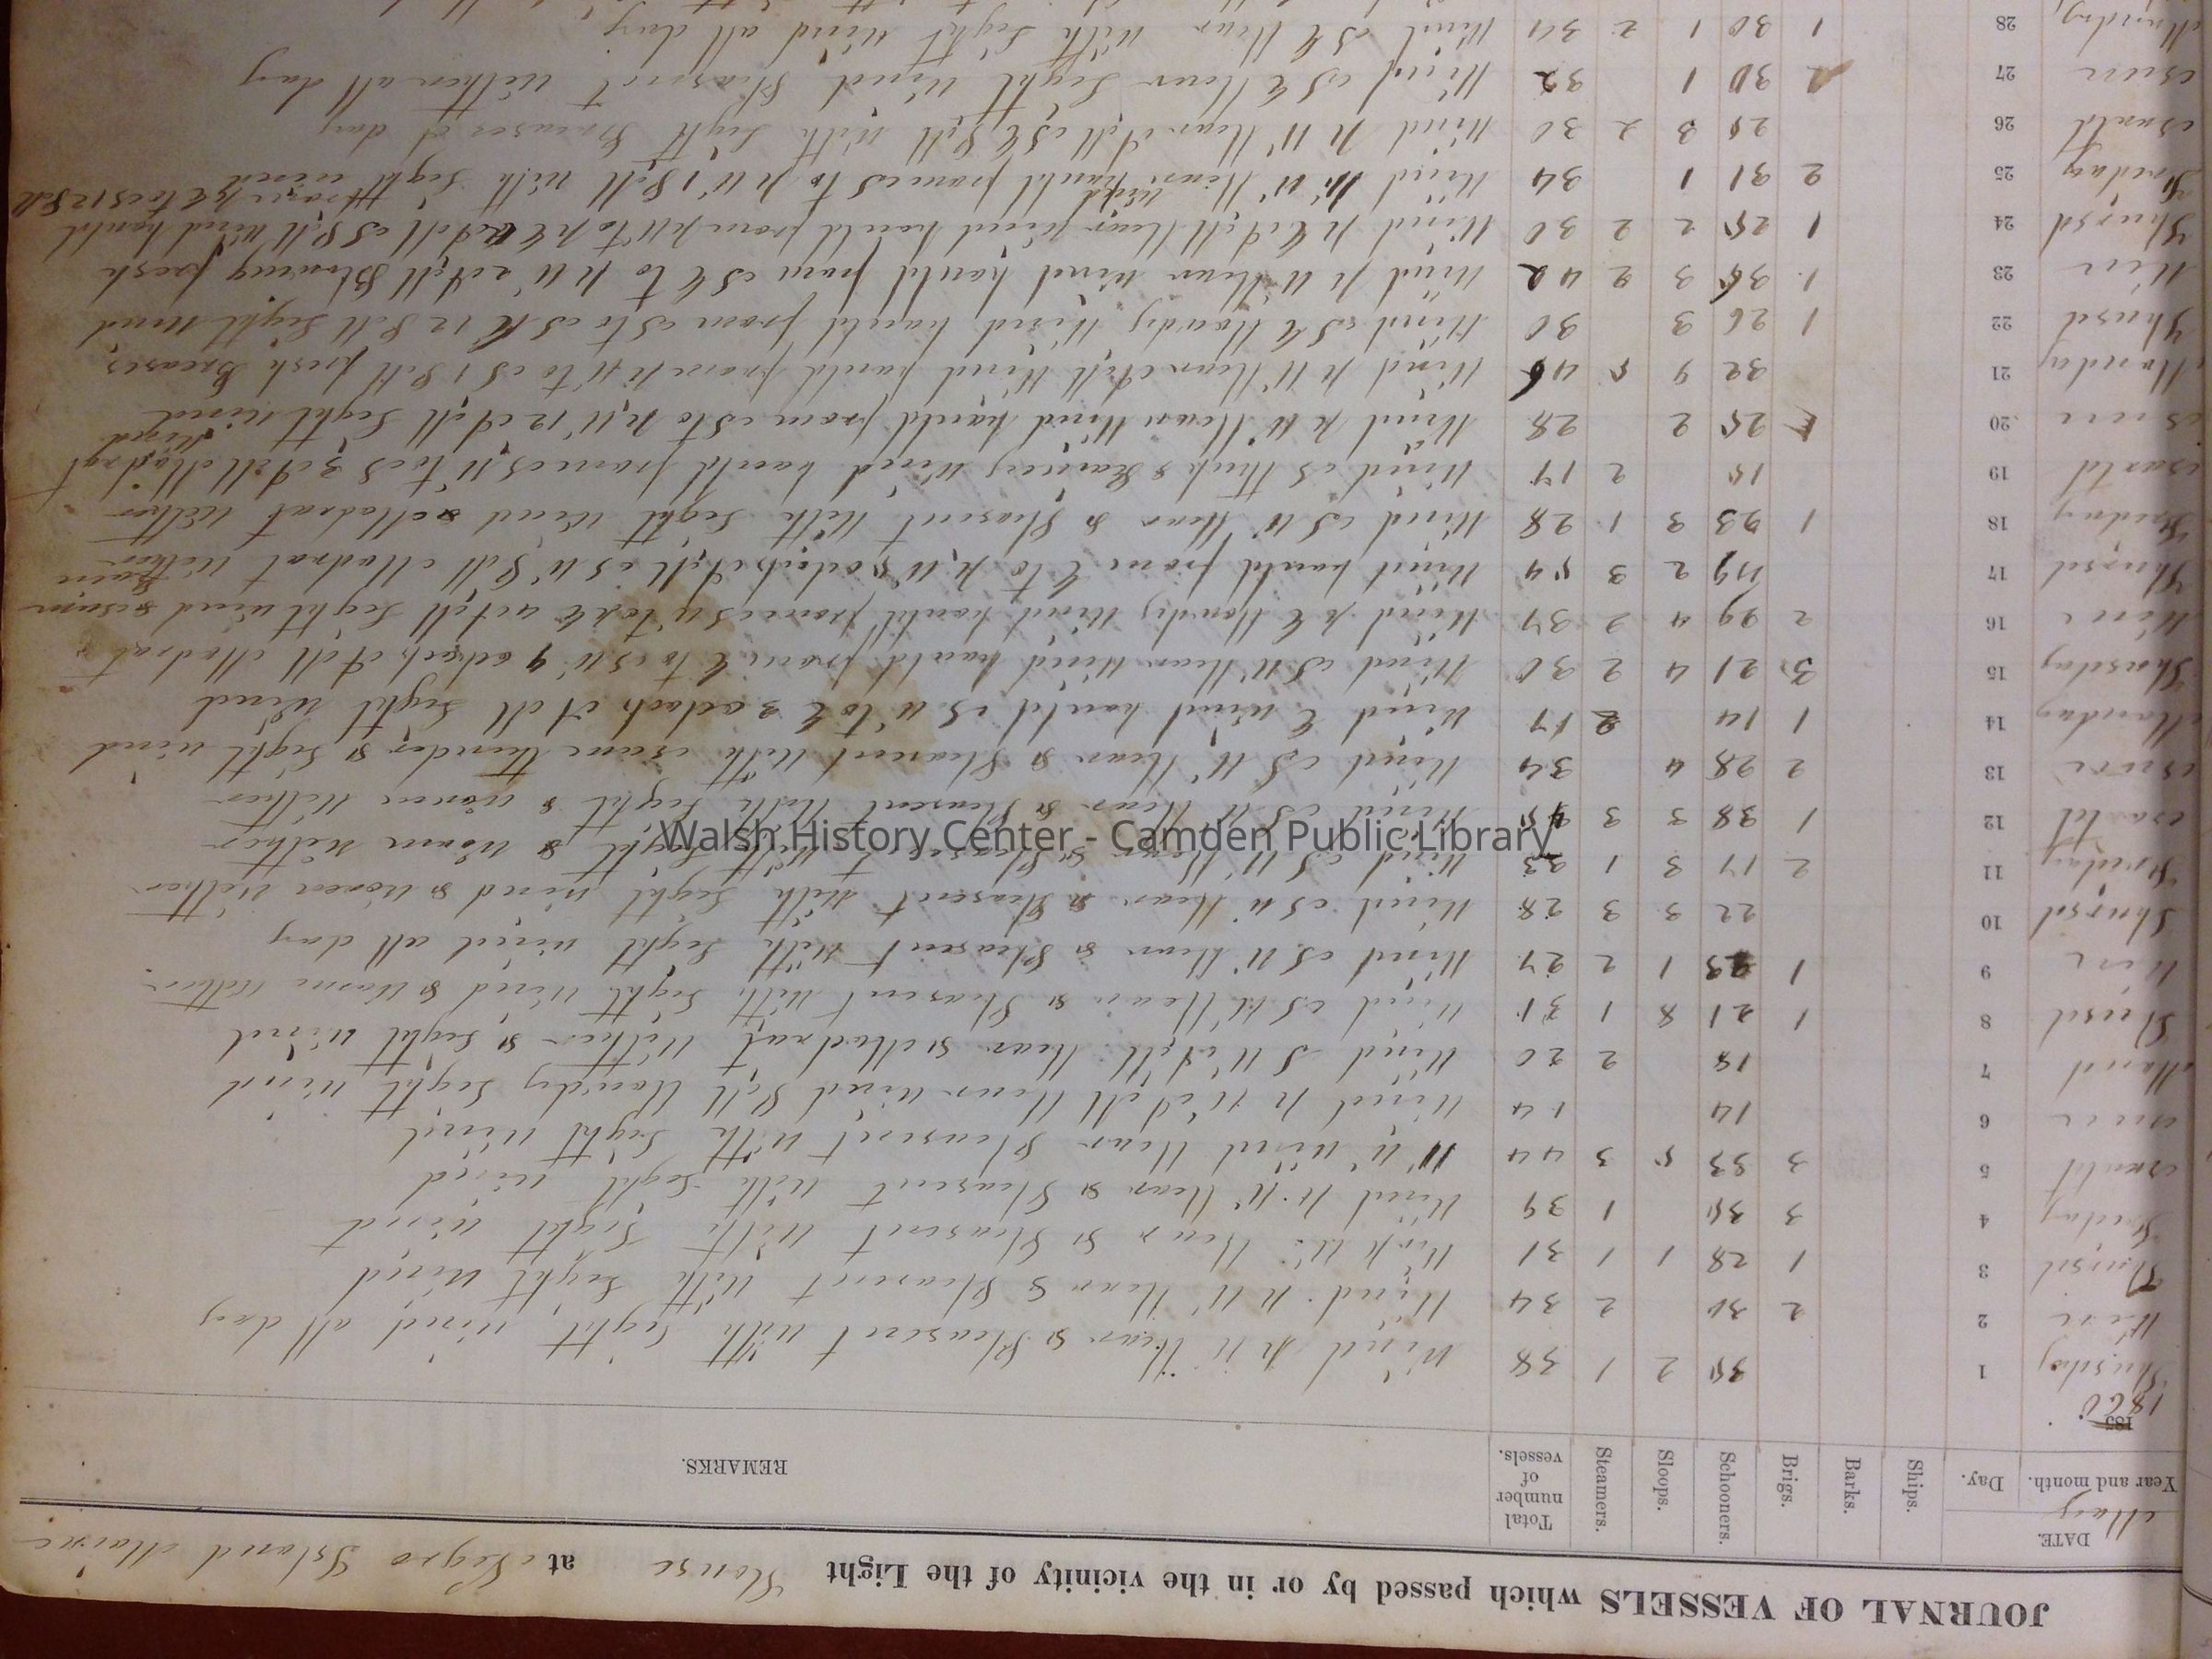 JOURNAL OF VESSELS which passed by or in the vicinity of the Light House at Negro Island Maine
DATE. Ships. Barks. Brigs. Schooners. Sloops. Steamers. Total number of vessels. REMARKS.
May
Year and month. Day.
185
1860
Thusday 1 35 2 1 38 Wind N W Clear & Pleasent with Light wind all day
Wen 2 2 30 2 34 Wind N W Clear & Pleasent with Light wind
Thursd 3 1 28 1 1 31 Clear & Pleasent with Light wind
Friday 4 3 35 1 39 Wind N. W Clear & Pleasent with Light wind
Sault 5 3 33 5 3 44 W wind Clear Pleasent with Light wind
6 14 14 Clear wind P M Cloudy Light wind
Mand 7 18 2 20 Wind S W A M Clear & Modrat Wether & Light wind
8 1 21 8 1 31 Wind S W Clear & Pleasent with Light wind & Warm Wether
Wen 9 1 23 1 2 27 Wind S W Clear & Pleasent with Light wind all day
Thursd 10 22 3 3 28 Wind S W Clear & Pleasent with Light wind & Warm Wether
Friday 11 2 17 3 1 23 Wind S W Clear & Pleasent with Light & Warm Wether
12 1 38 3 3 45 Wind S W Clear & Pleasent with Light & Warm Wether
13 2 28 4 34 Wind S W Clear & Pleasent with sum thunder & Light wind
Monday 14 1 14 2 17 Wind E wind hauld S W to E 3 oclock A M Light Wind
Thusday 15 3 21 4 2 30 Wind S W Clear Wind hauld from E to S W 9 oclock A M Modrat
Wen 16 2 29 4 2 37 Wind N E Cloudy Wind hauld from S W to N E 4 A M Light wind & sum Rain
Thursd 17 49 2 3 54 Wind hauld from E to N W oclock A M S W P M Modrat Wether
Friday 18 1 23 3 1 28 Wind S W Clear & Pleasent with Light Wind & Modrat Wether
19 15 2 17 Wind S Thick & Raining Wind hauld from S W to S 3 A M Modrat Wind
20 25 2 28 Wind N W Clear Wind hauld from S to N W 12 A M Light Wind
Monday 21 32 9 5 46 Wind N W Clear A M Wind hauld from N W to S 1 P M fresh Breases
Thusd 22 1 26 3 30 Wind S E Cloudy Wind hauld from S to S E 12 P M Light Wind
Wen 23 1 36 3 2 42 Wind N W Clear Wind hauld from S E to N W 2 A M Blowing fresh
Thursd 24 1 25 2 2 30 Wind N E A M Clear wind hauld from N W to N E A M S P M Wind hauld from N E to S 12 P M
Friday 25 2 31 1 34 Wind N W Clear Wind hauld from S to N W 1 P M with Light wind
Sault 26 25 3 2 30 Wind N W Clear A M S E P M with Light Breases A day
27 30 1 32 Wind S E Clear Light Wind Pleasent Wether all day
Munday 28 1 30 1 2 34 Wind S E Clear with Light Wind all day
Walsh History Center - Camden Public Library